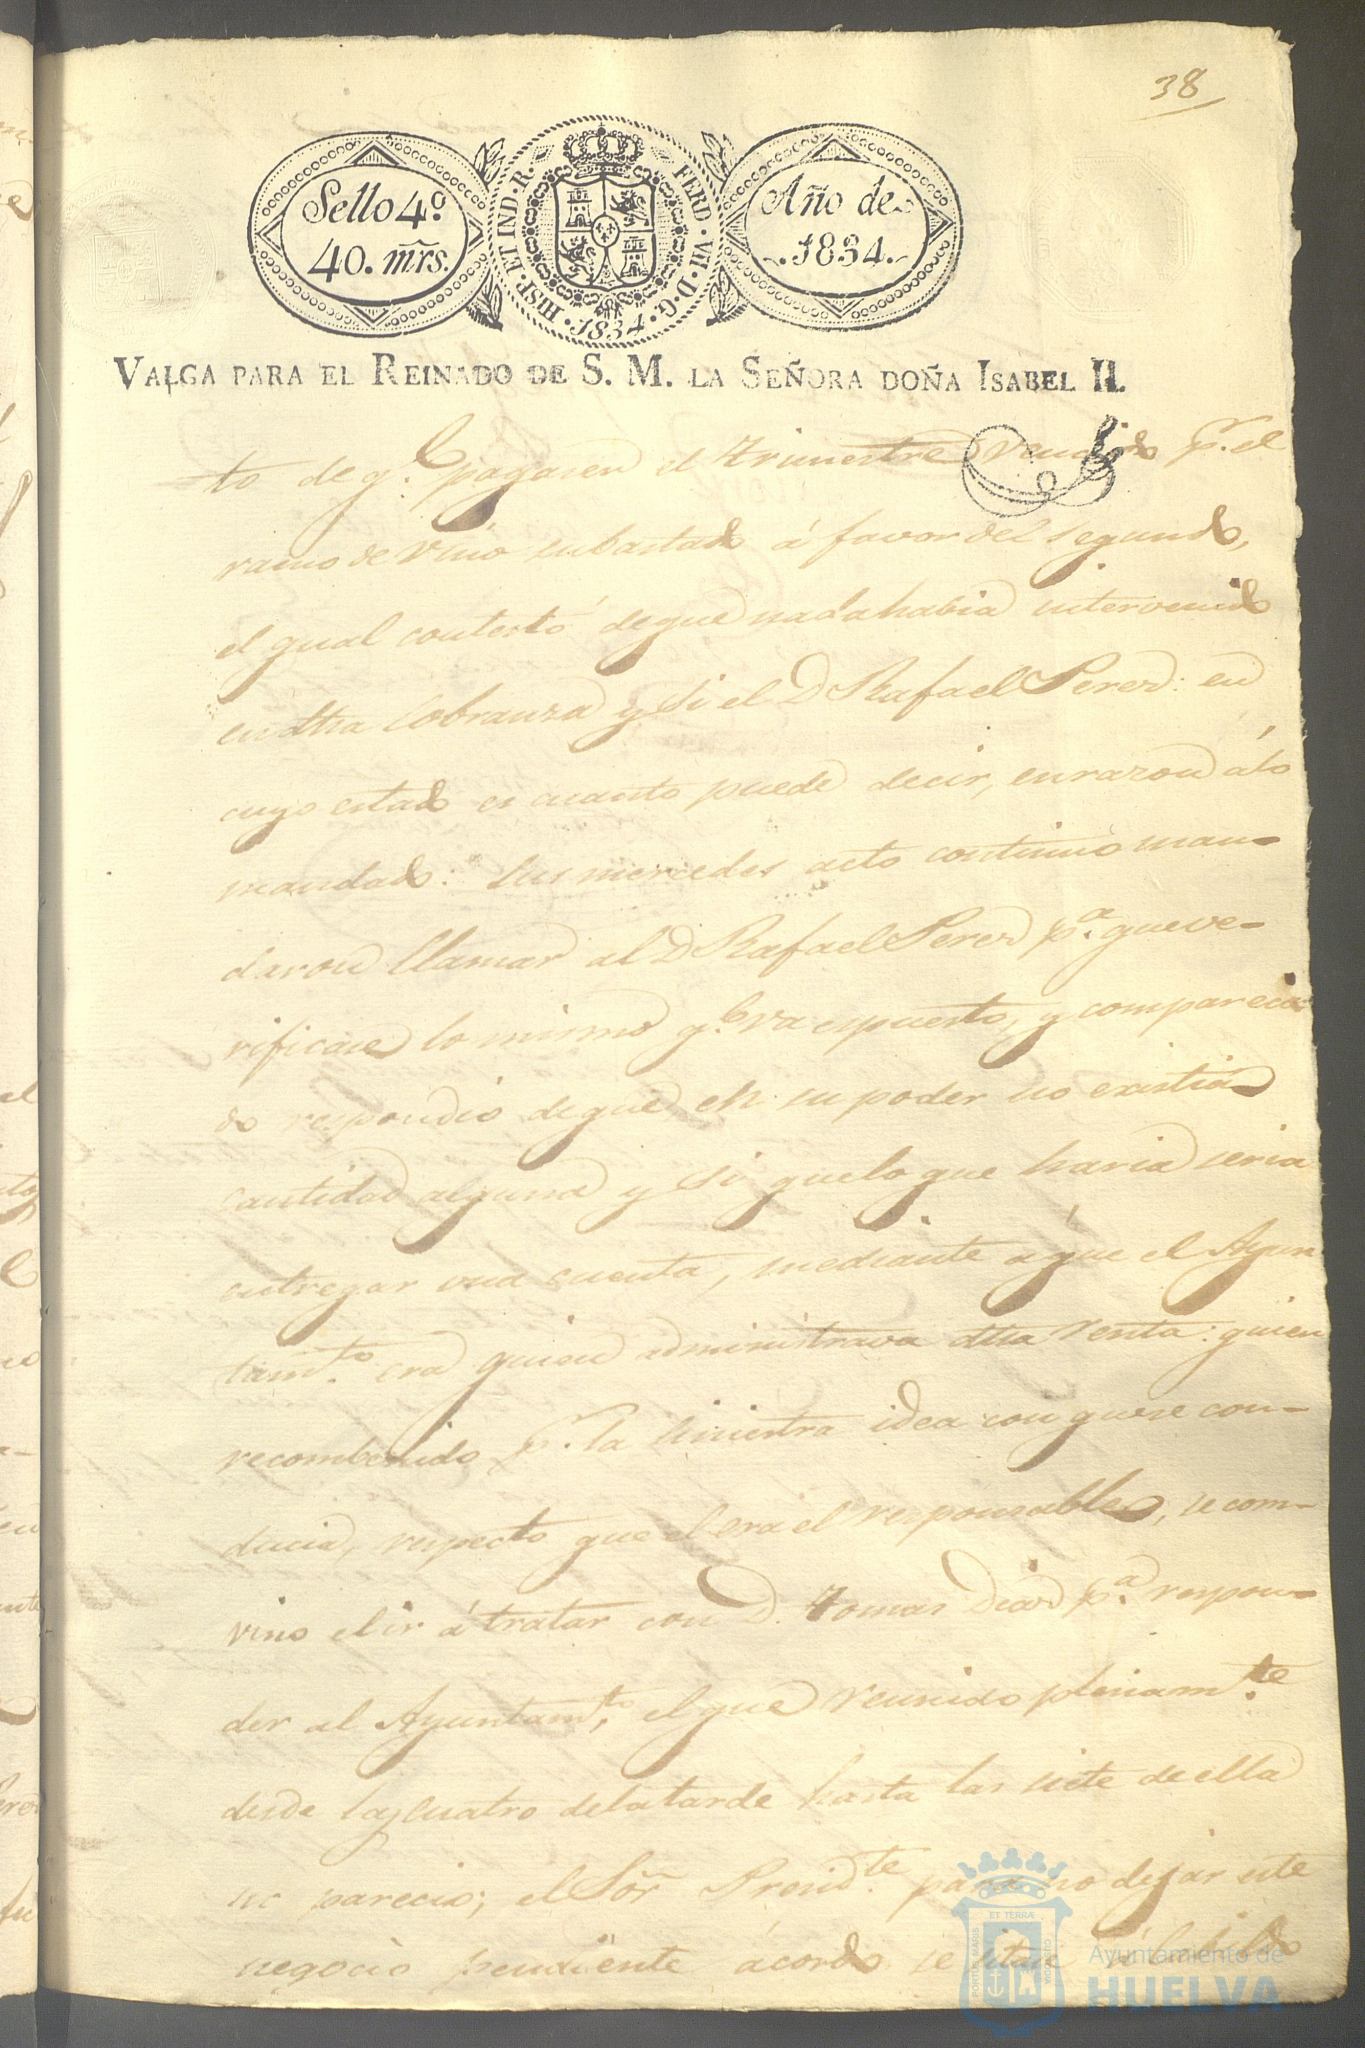 38
Sello 4º
40. mrs.
HISP. ET IND. R. FERD. VII. D. G. 1834.
Año de
1834.
VALGA PARA EL REINADO DE S. M. LA SEÑORA DOÑA ISABEL II.
to de q.e pagasen el trimestre vencido p.r el
ramo de vino subastado á favor del segundo,
el qual contestó de que nada habia intervenido
en dha cobranza y si el D Rafael Perez: en
cuyo estado es cuanto puede decir, en razon á lo
mandado: sus mercedes acto continuo man-
daron llamar al D Rafael Perez p.a que ve-
rificase lo mismo q.e va espuesto, y comparecien
do respondio de que en su poder no existia
cantidad alguna y si que lo que haria seria
entregar una cuenta, mediante a que el Ayun
tam.to era quien administrava dha renta: quien
recombenido p.r la siniestra idea con que se con-
ducia, respecto que el era el responsable, se com-
vino el ir á tratar con D. Tomas Diaz p.a respon-
der al Ayuntam.to, el que reunido plenam.te
desde las cuatro de la tarde hasta las siete de ella
no parecio; el Sor Presid.te para no dejar este
negocio pendiente acordo se citase á Cabildo
PORTUS MARIS ET TERRAE CUSTODIA
Ayuntamiento de
HUELVA